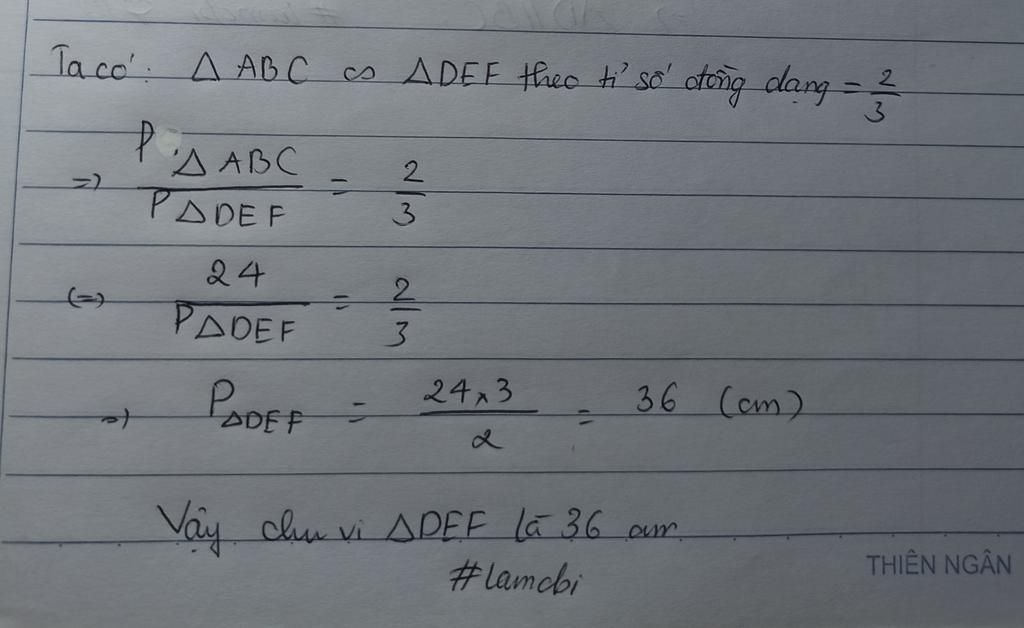 Ta có: Δ ABC ∽ ΔDEF theo tỉ số đồng dạng = 2/3
=> P Δ ABC / P ΔDEF = 2/3
(=) 24 / P ΔDEF = 2/3
=) P ΔDEF = 24 x 3 / 2 = 36 (cm)
Vậy chu vi ΔDEF là 36 cm
THIÊN NGÂN
#lamcbi